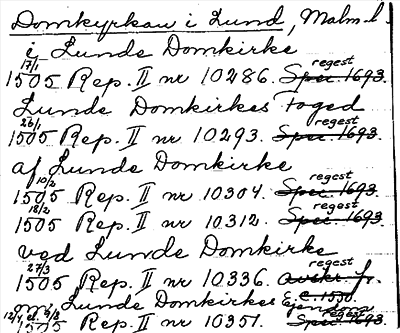 Domkyrkan i Lund, Malm. l.
i Lunde Domkirke
17/1 1505 Rep. II nr 10286. Spec. 1693. regest
Lunde Domkirkes Foged
26/1 1505 Rep. II nr 10293. Spec. 1693. regest
af Lunde Domkirke
10/2 1505 Rep. II nr 10304. Spec. 1693. regest
18/2 1505 Rep. II nr 10312. Spec. 1693. regest
ved Lunde Domkirke
27/3 1505 Rep. II nr 10336. avskr. fr. regest
om Lunde Domkirkes Ejendom c. 1530.
1505 Rep. II nr 10351. Spec. 1693. regest